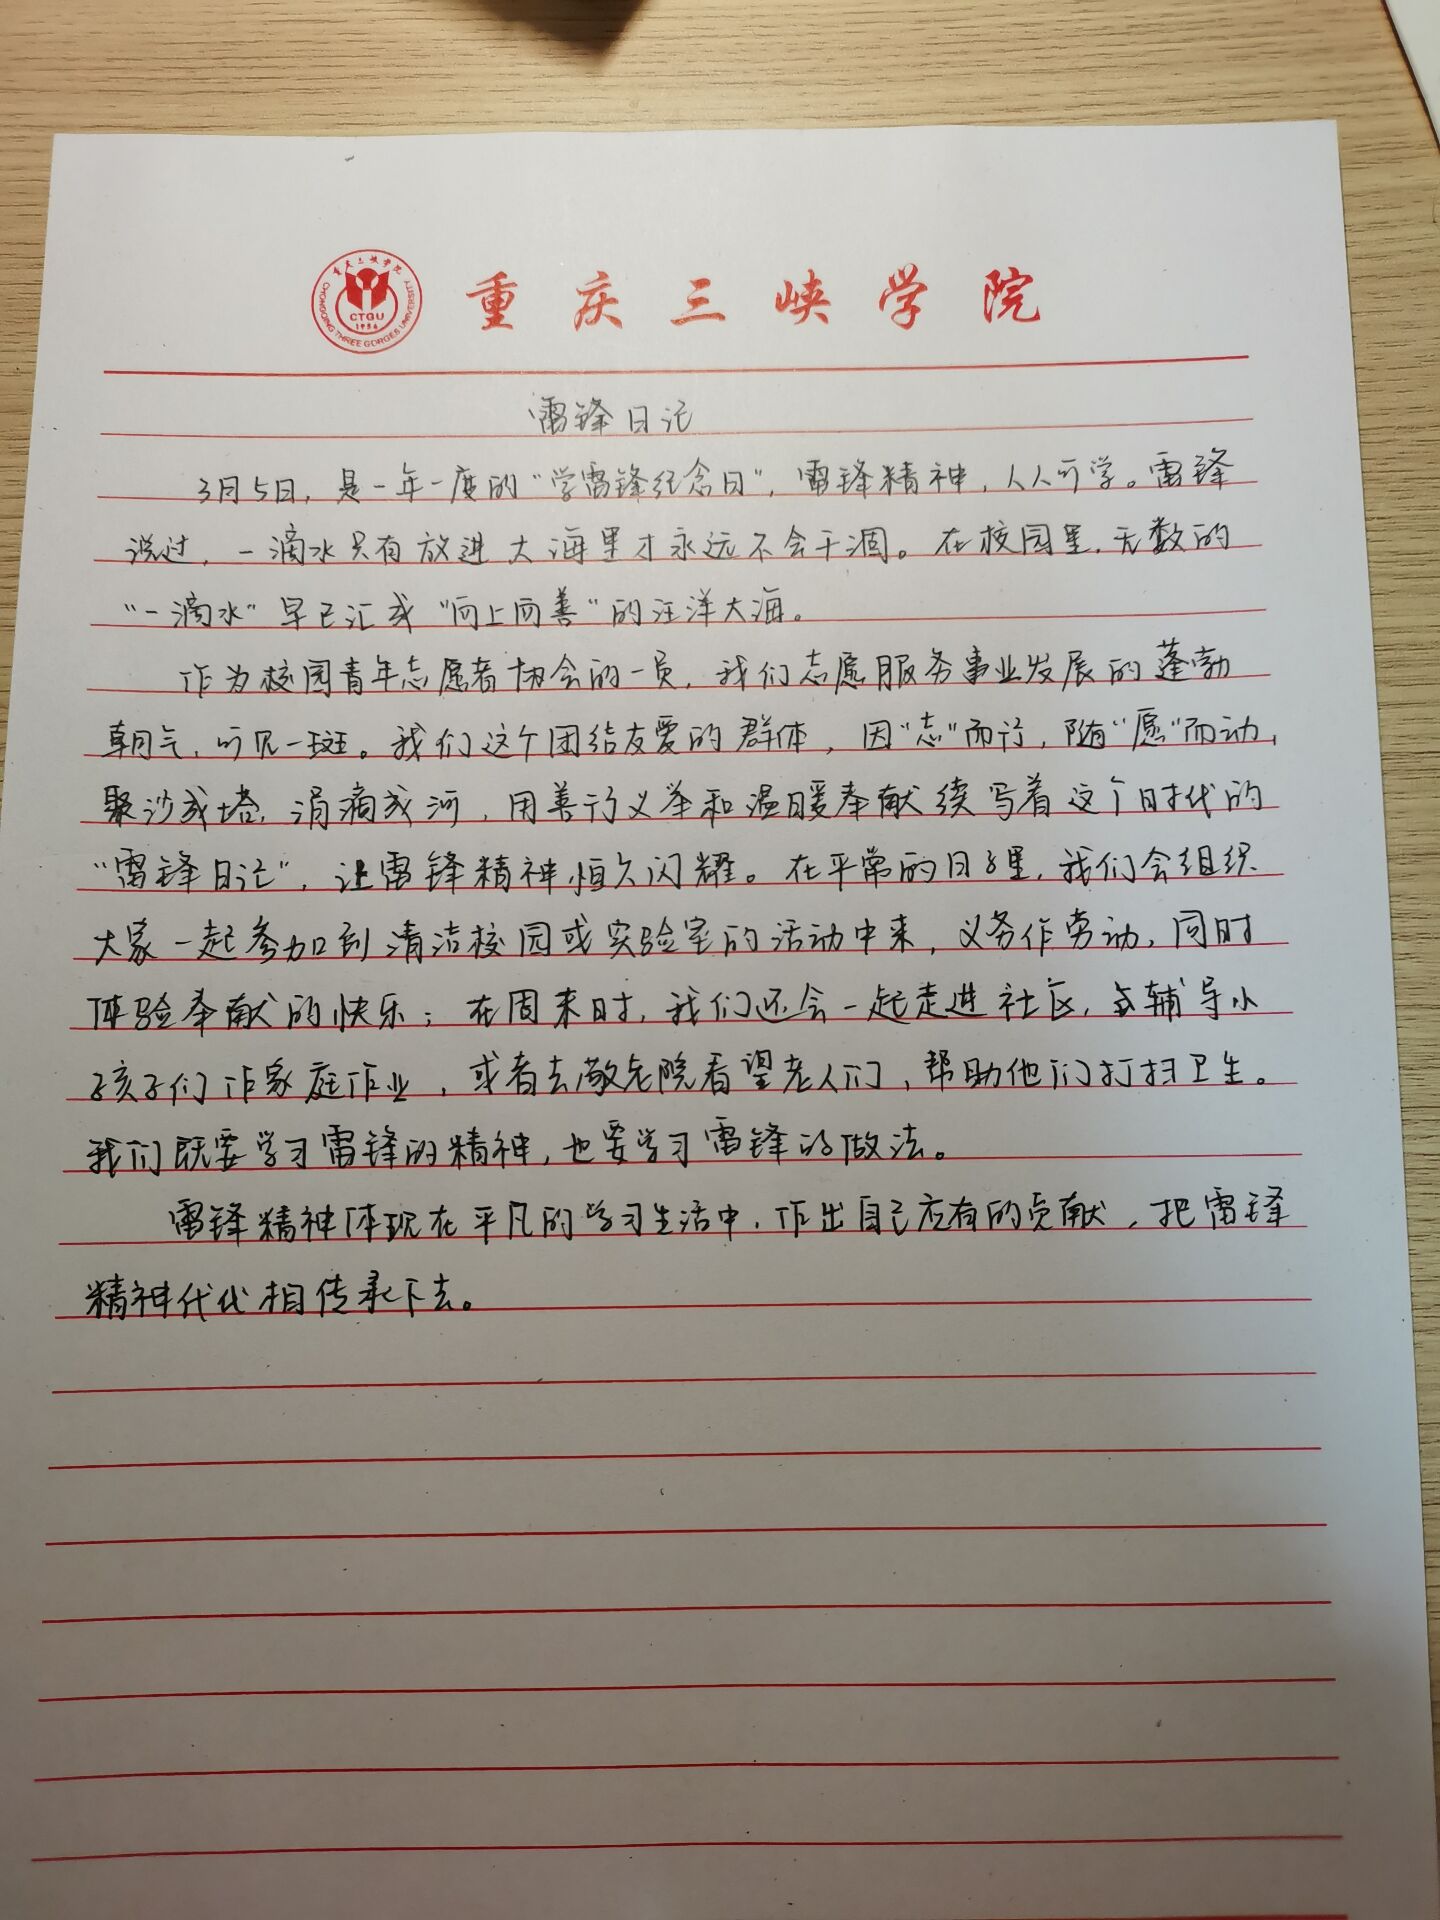 重庆三峡学院
CTGU
1956
CHONGQING THREE GORGES UNIVERSITY
雷锋日记
3月5日，是一年一度的“学雷锋纪念日”，雷锋精神，人人可学。雷锋
说过，一滴水只有放进大海里才永远不会干涸。在校园里，无数的
“一滴水”早已汇成“向上向善”的汪洋大海。
作为校园青年志愿者协会的一员，我们志愿服务事业发展的蓬勃
朝气，可见一斑。我们这个团结友爱的群体，因“志”而行，随“愿”而动，
聚沙成塔，涓滴成河，用善行义举和温暖奉献续写着这个时代的
“雷锋日记”，让雷锋精神恒久闪耀。在平常的日子里，我们会组织
大家一起参加到清洁校园或实验室的活动中来，义务作劳动，同时
体验奉献的快乐；在周末时，我们还会一起走进社区，辅导小
孩子们作家庭作业，或者去敬老院看望老人们，帮助他们打扫卫生。
我们既要学习雷锋的精神，也要学习雷锋的做法。
雷锋精神体现在平凡的学习生活中，作出自己应有的贡献，把雷锋
精神代代相传承下去。